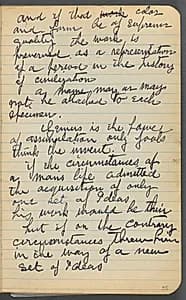 and if that color
and form be of Supreme
quality. The work is
preserved as a representation
of a period in the history
of civilization
a name may or may
not be attached to each
specimen.
Genius is the power
of assimilation only fools
think they invent. If
in the circumstances of
a mans life admitted
the acquisition of only
one set of Ideas
his work should be their
but if on the contrary
circumstances threw him
in the way of a new
set of Ideas